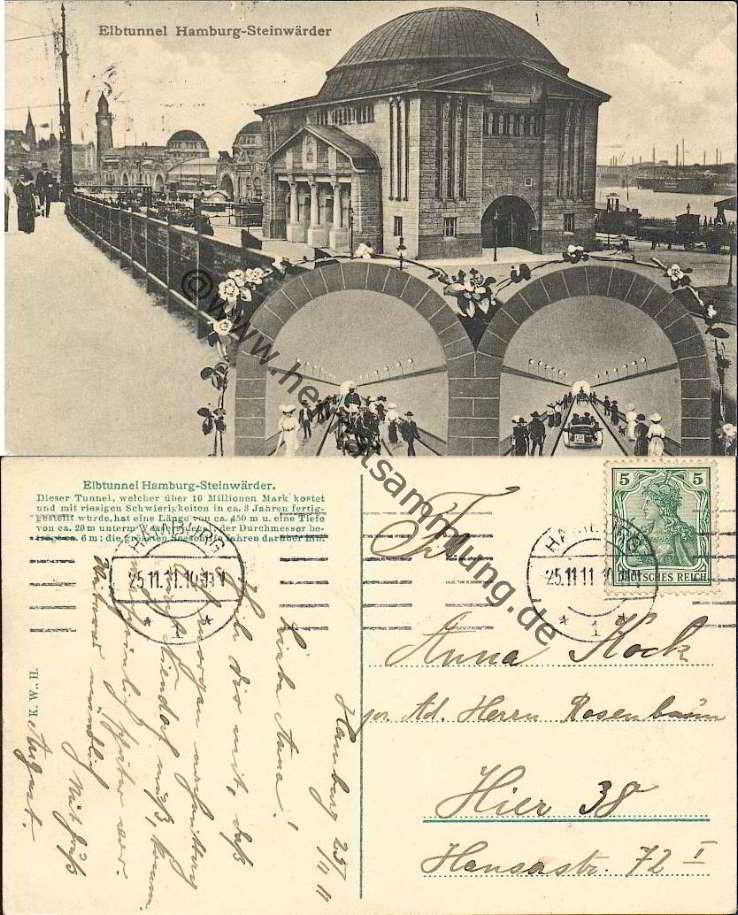 Elbtunnel Hamburg-Steinwärder
©www.heimatsammlung.de
Elbtunnel Hamburg-Steinwärder.
Dieser Tunnel, welcher über 10 Millionen Mark kostet
und mit riesigen Schwierigkeiten in ca. 3 Jahren fertig-
gestellt wurde, hat eine Länge von ca. 450 m u. eine Tiefe
von ca. 20 m unterm Wasserspiegel, der Durchmesser be-
trägt ca. 6 m; die grössten Seeschiffe fahren darüber hin.
K. W., H.
HAMBURG
25.11.11
* 1 *
5 5
DEUTSCHES REICH
HAMBURG
25.11.11
* 1 *
Anna Kock
pr. Ad. Herrn Rosenbaum
Hier 38
Hansastr. 72 I
Hamburg 25/11 11
Liebe Anna!
Teile dir mit, daß
ich morgen
nach Niendorf muß, komme
später
Mit Gruß
August.